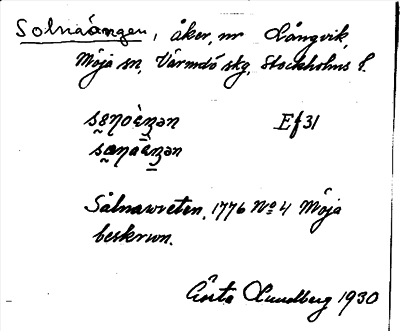 Solnaängen, åker, nr Långvik,
Möja sn, Värmdö skg, Stockholms l.
Ef 31
Sålnawreten, 1776 No 4 Möja
beskrivn.
Gösta Lundberg 1930